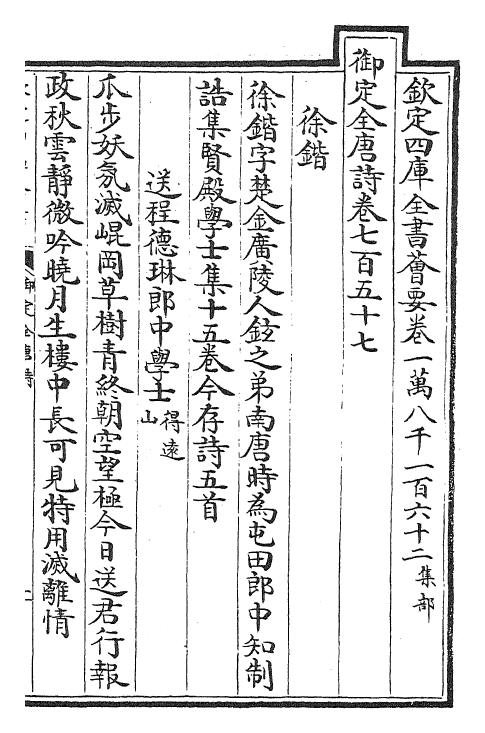 欽定四庫全書薈要卷一萬八千一百六十二集部
御定全唐詩卷七百五十七
徐鍇
徐鍇字楚金廣陵人鉉之弟南唐時為屯田郎中知制
誥集賢殿學士集十五卷今存詩五首
送程德琳郎中學士得遠山
瓜步妖氛滅崐岡草樹青終朝空望極今日送君行報
政秋雲靜微吟曉月生樓中長可見特用滅離情
御定全唐詩